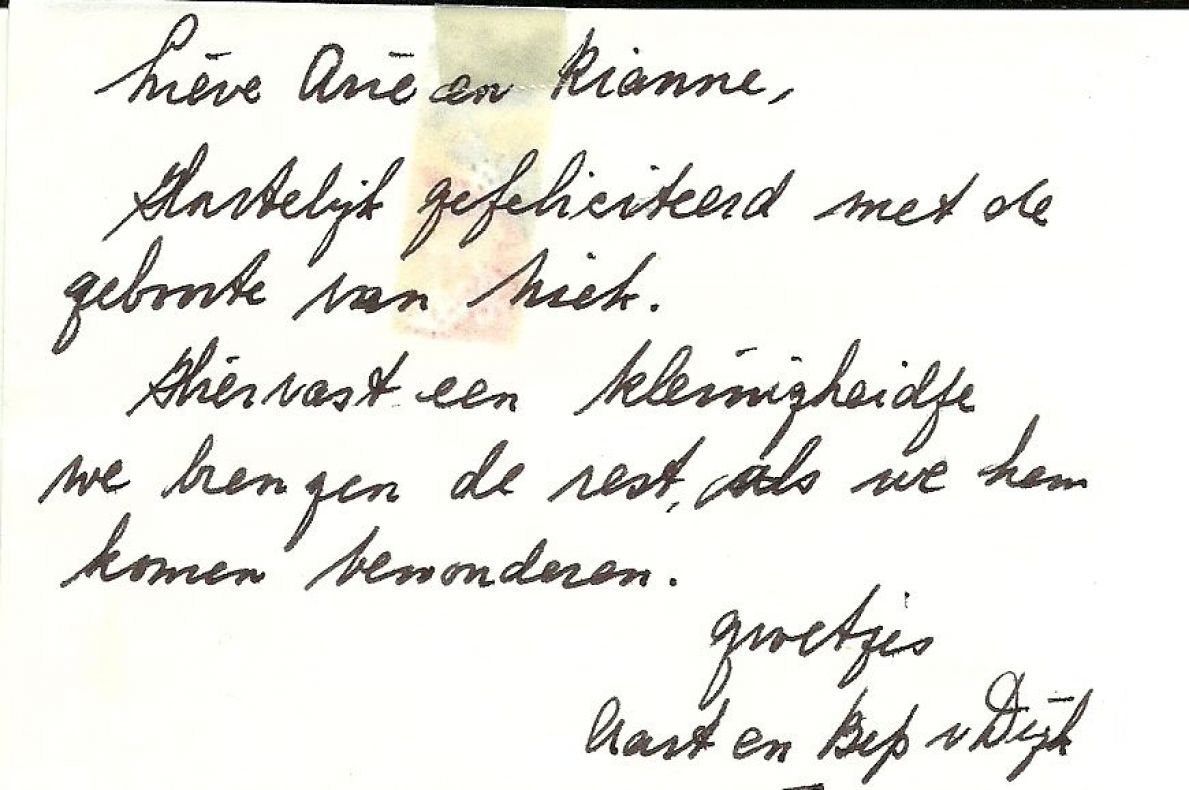 Lieve Arie en Rianne,
Hartelijk gefeliciteerd met de
geboorte van Niek.
Hiervast een kleinigheidje
we brengen de rest, als we hem
komen bewonderen.
groetjes
Aart en Bep v Dijk